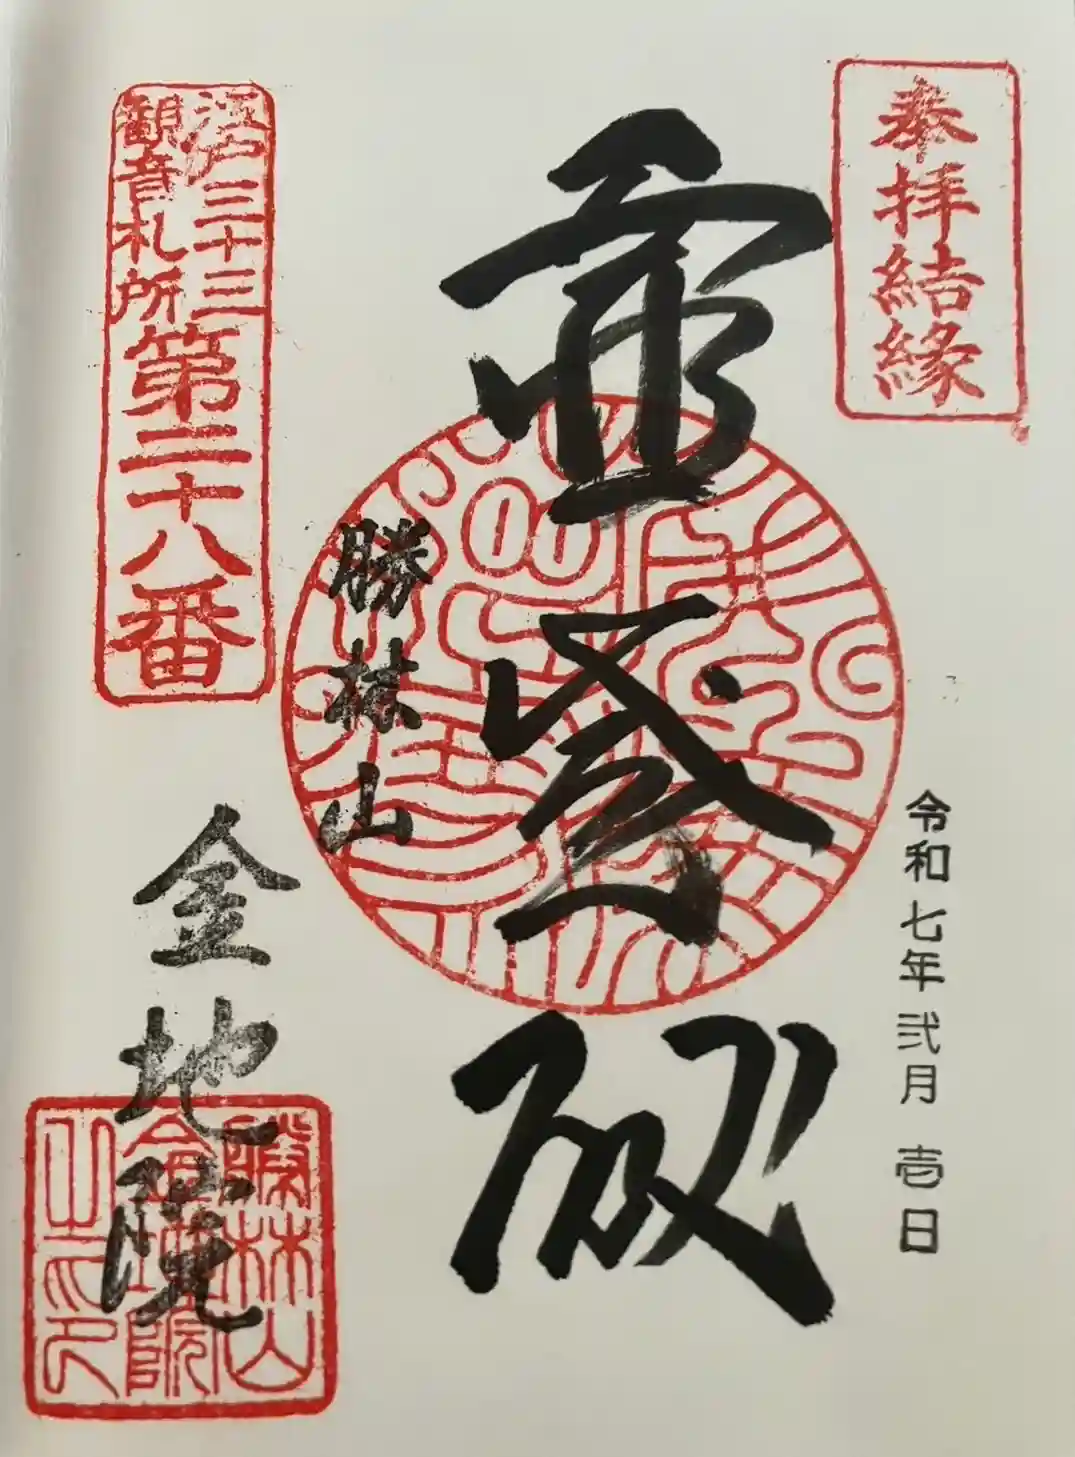 奉拝結縁
令和七年弐月壱日
勝林山
金地院
江戸三十三
観音札所
第二十八番
勝林山
金地院
之印